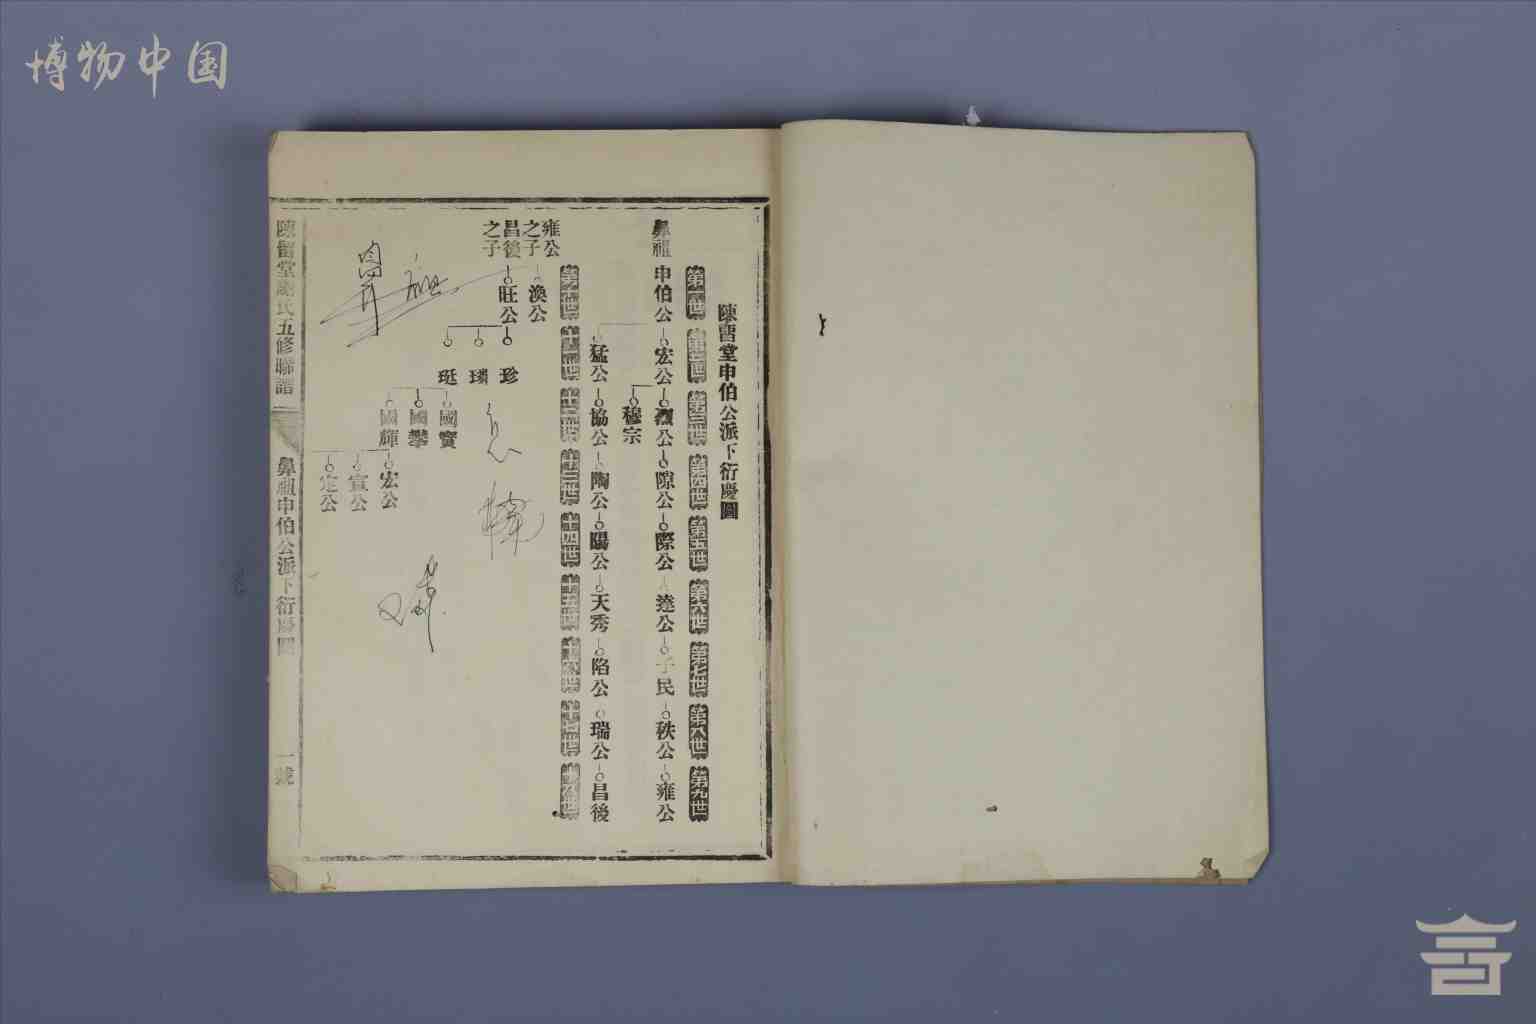 博物中国
陳畱堂申伯公派下衍慶圖
第一世
第二世
第三世
第四世
第五世
第六世
第七世
第八世
第九世
鼻祖
申伯公
宏公
烈公
隙公
際公
達公
子民
秩公
雍公
穆宗
猛公
協公
陶公
陽公
天秀
陷公
瑞公
昌後
第十世
十一世
十二世
十三世
十四世
十五世
十六世
十七世
十八世
雍公之子
渙公
昌後之子
旺公
珍
璘
珽
國寶
國攀
國輝
宏公
宣公
定公
鼻祖
陳畱堂謝氏五修聯譜
鼻祖申伯公派下衍慶圖
一號